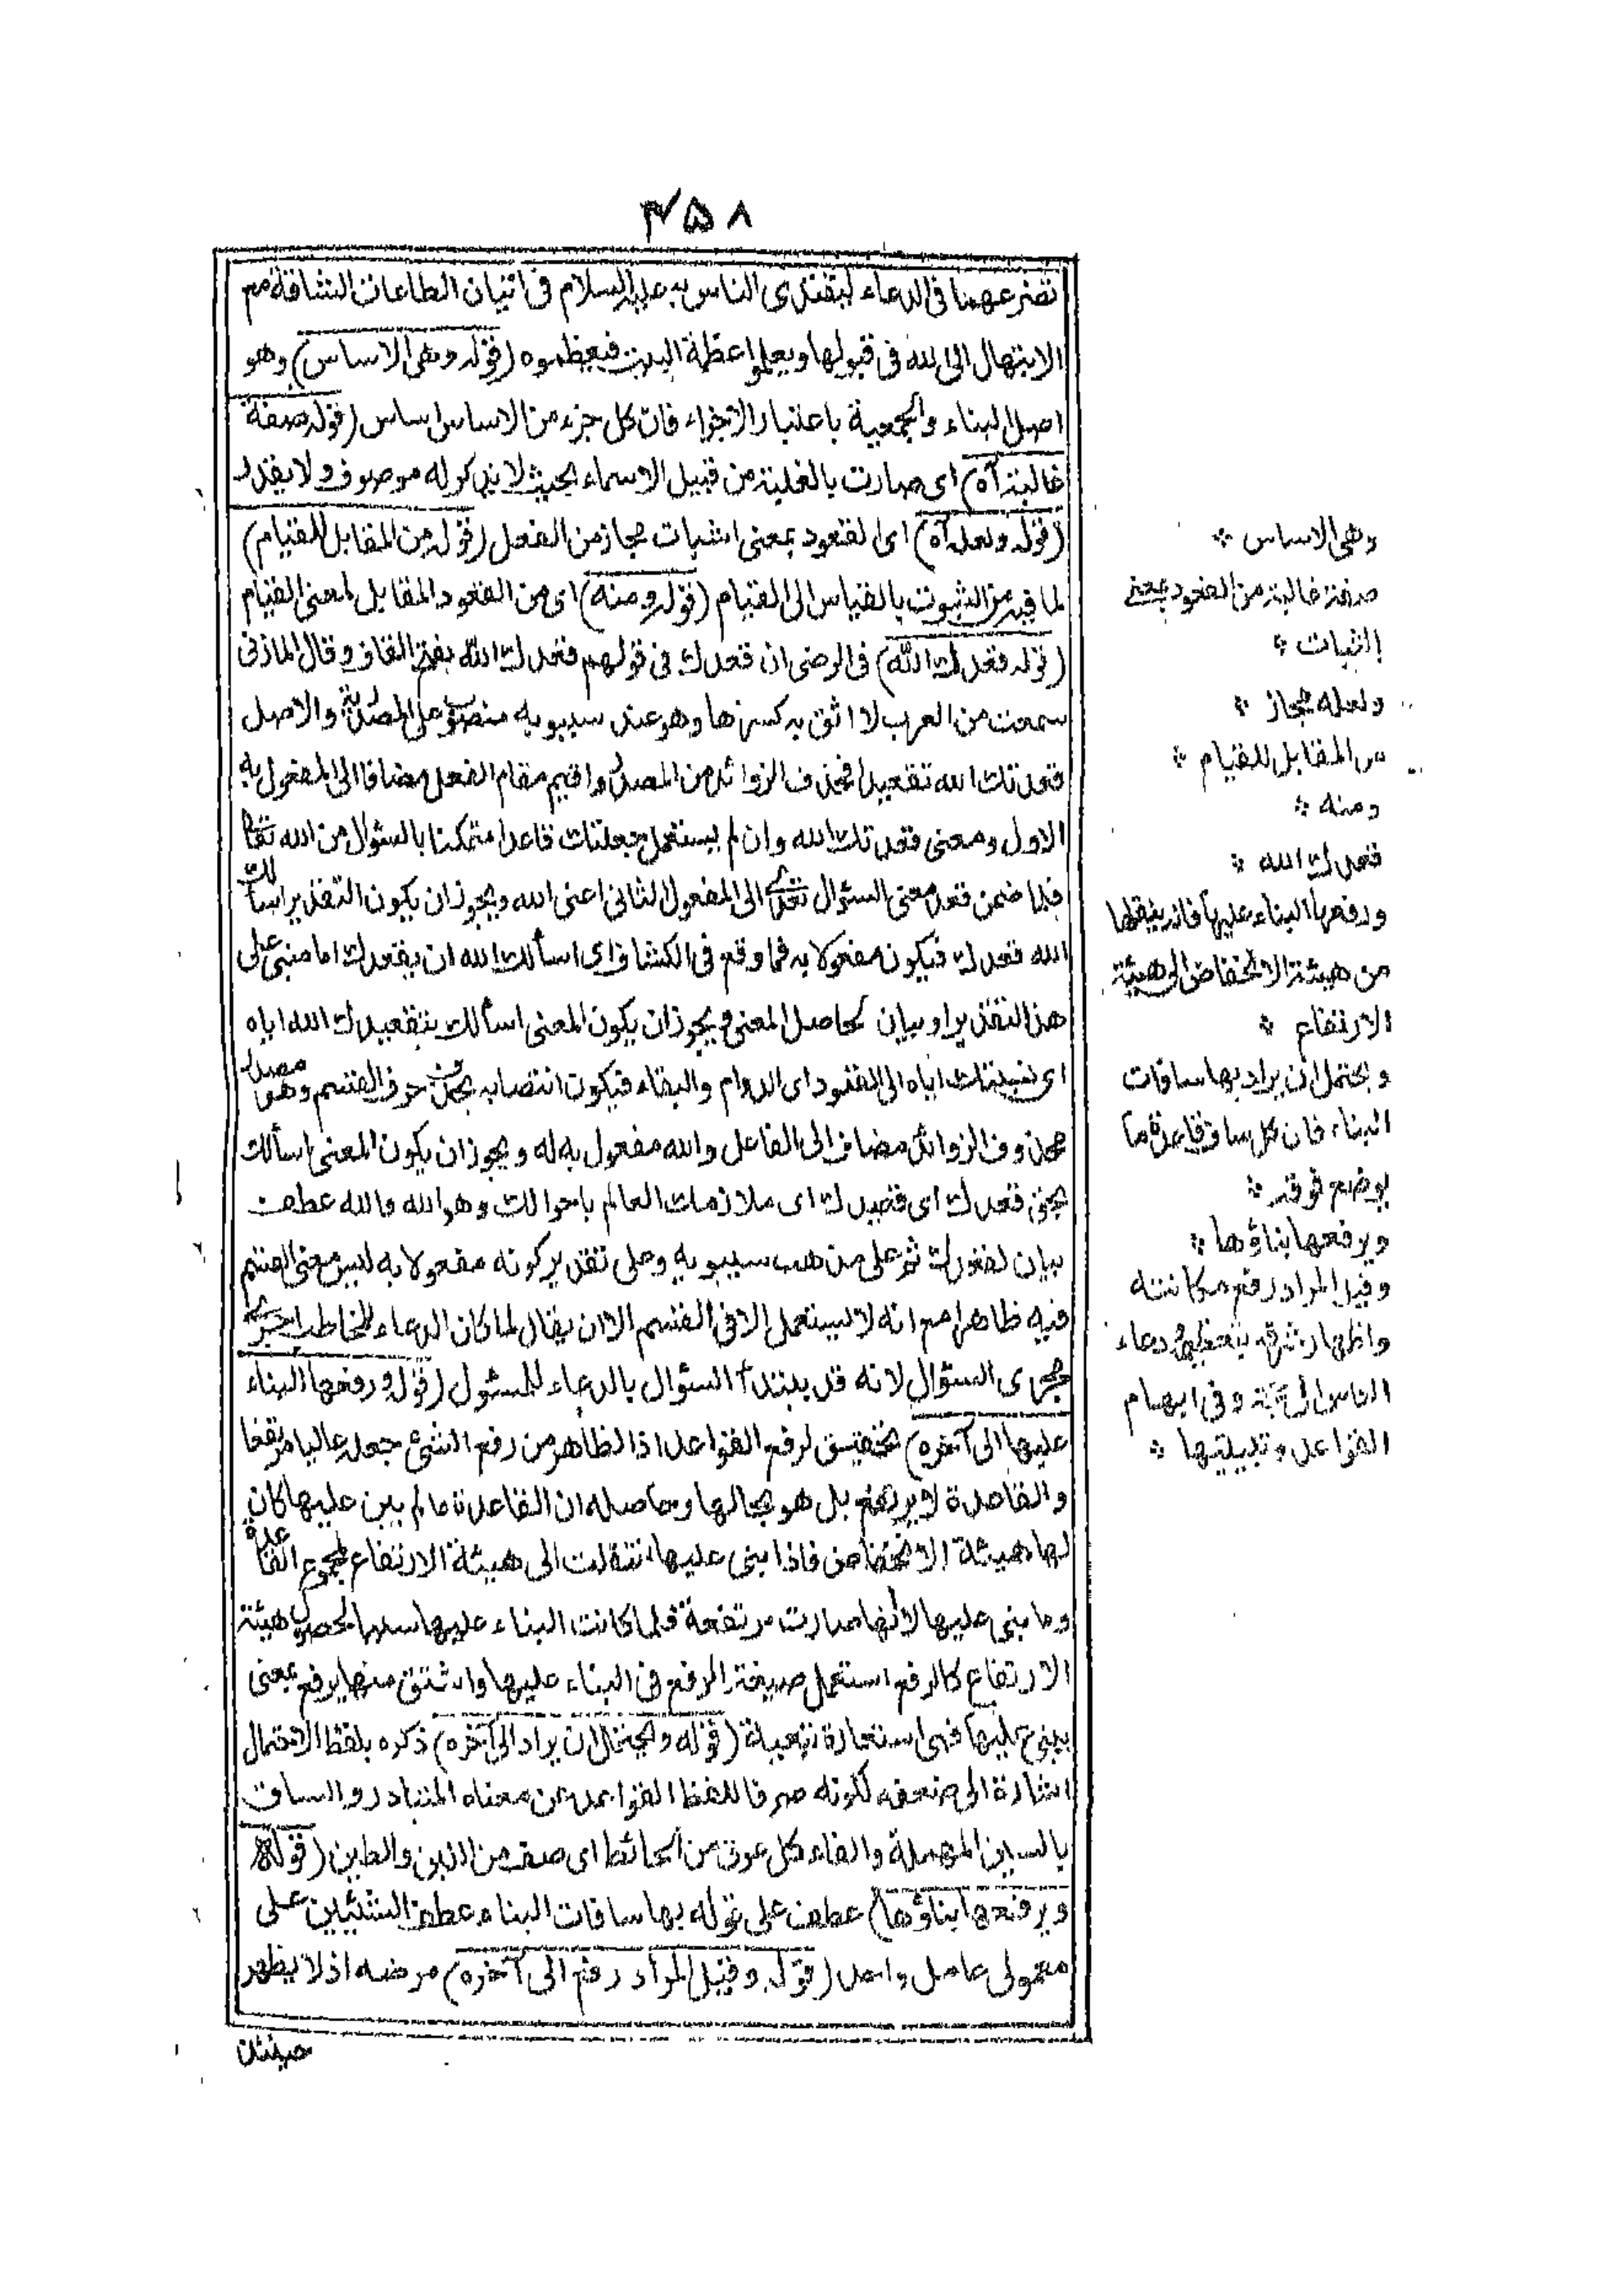 ۴۵۸
تضرعهما فى الدعاء ليقتدى الناس به عليه السلام فى اتيان الطاعات الشاقة مع
الابتهال الى الله فى قبولها ويعلموا عظمة البيت فيعظموه (قوله وهى الاساس) وهو
اصل البناء والجمعية باعتبار الاجزاء فان كل جزء من الاساس اساس (قوله صفة
غالبة آه) اى صارت بالغلبة من قبيل الاسماء بحيث لا يذكر له موصوف ولا يقدر
(قوله ولعله آه) اى القعود بمعنى الثبات مجاز من الفعل (قوله من المقابل للقيام)
لما فيه من الثبوت بالقياس الى القيام (قوله ومنه) اى من القعود المقابل لمعنى القيام
(قوله قعدك الله) فى الرضى ان قعدك فى قولهم قعدك الله بفتح القاف وقال المازنى
سمعت من العرب لا اثق به كسرها وهو عند سيبويه منصوب على المصدرية والاصل
قعدتك الله تقعيدا فحذف الزوائد من المصدر واقيم مقام الفعل مضافا الى المفعول به
الاول ومعنى قعدتك الله وان لم يستعمل جعلتك قاعدا متمكنا بالسؤال من الله تعالى
فلما ضمن قعد معنى السؤال تعدى الى المفعول الثانى اعنى الله ويجوز ان يكون التقدير اسألك
الله قعدك فيكون مفعولا به فما وقع فى الكشاف اى اسألك الله ان يقعدك اما مبنى على
هذا التقدير او بيان لحاصل المعنى ويجوز ان يكون المعنى اسألك بتقعيدك الله اياه
اى نسبتك اياه الى القعود اى الدوام والبقاء فيكون انتصابه بحذف حرف القسم وهى مصدر
محذوف الزوائد مضاف الى الفاعل والله مفعول به له ويجوز ان يكون المعنى اسألك
بحق قعدك اى قعيدك اى ملازمك العالم باحوالك وهو الله والله عطف
بيان لقعدك ثم على مذهب سيبويه وعلى تقدير كونه مفعولا به ليس معنى القسم
فيه ظاهرا مع انه لا يستعمل الا فى القسم الا ان يقال لما كان الدعاء للمخاطب
مجرى السؤال لانه قد يبتدأ السؤال بالدعاء للمسئول (قوله ورفعها البناء
عليها الى آخره) تحقيق لرفع القواعد اذ الظاهر من رفع الشئ جعله عاليا مرتفعا
والقاعدة لا يرتفع بل هو بحالها وحاصله ان القاعدة ما لم يبن عليها كان
لها هيئة الانخفاض فاذا بنى عليها انتقلت الى هيئة الارتفاع لمجموع القاعدة
وما بنى عليها لا انها صارت مرتفعة فلما كانت البناء عليها سببا لحصول هيئة
الارتفاع كالرفع استعمل صيغة الرفع فى البناء عليها واشتق منها يرفع بمعنى
يبنى عليها فهى استعارة تبعية (قوله ويحتمل ان يراد الى آخره) ذكره بلفظ الاحتمال
اشارة الى ضعفه لكونه صرفا للفظ القواعد عن معناه المتبادر والساف
بالسين المهملة والفاء كل عرق من الحائط اى صف من اللبن والطين (قوله
ويرفعها بناؤها) عطف على قوله بها سافات البناء عطف الشيئين على
معمولى عامل واحد (قوله وقيل المراد رفع الى آخره) مرضه اذ لا يظهر
حينئذ
وهى الاساس
صفة غالبة من القعود بمعنى
الثبات
ولعله مجاز
من المقابل للقيام
ومنه
قعدك الله
ورفعها البناء عليها فانه ينقلها
من هيئة الانخفاض الى هيئة
الارتفاع
ويحتمل ان يراد بها سافات
البناء فان كل ساف قاعدة ما
يوضع فوقه
ويرفعها بناؤها
وقيل المراد رفع مكانته
واظهار شرفه بتعظيمه ودعاء
الناس الى حجه وفى ابهام
القواعد وتبيينها